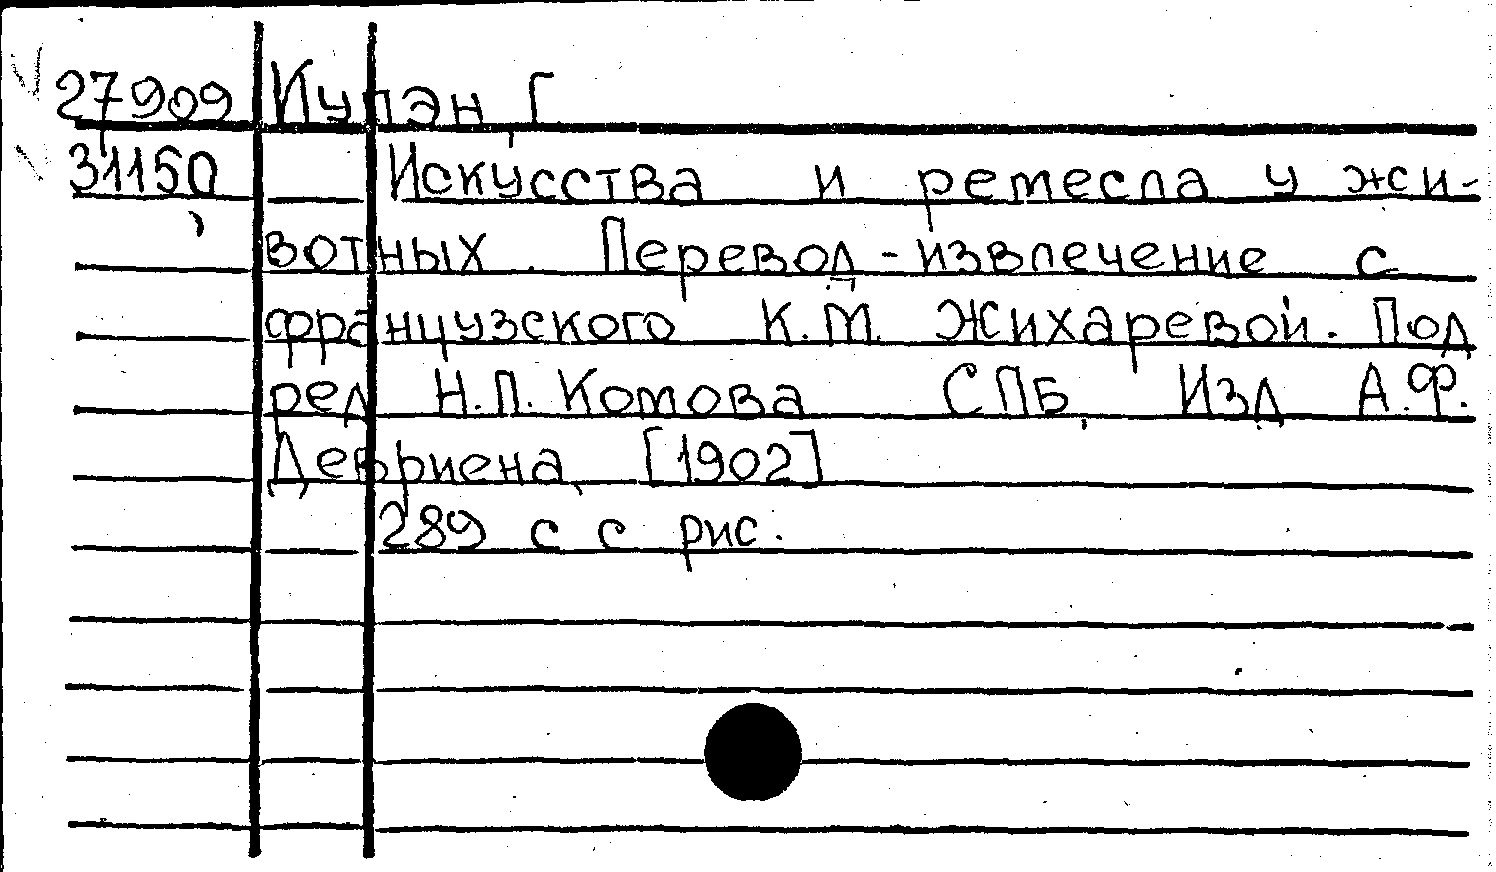 27909 Купэн, Г
31150 Искусства и ремесла у жи-
вотных. Перевод-извлечение с
французского К.М. Жихаревой. Под
ред Н.П. Комова СПБ, Изд А.Ф.
Девриена, [1902]
289 с с рис.